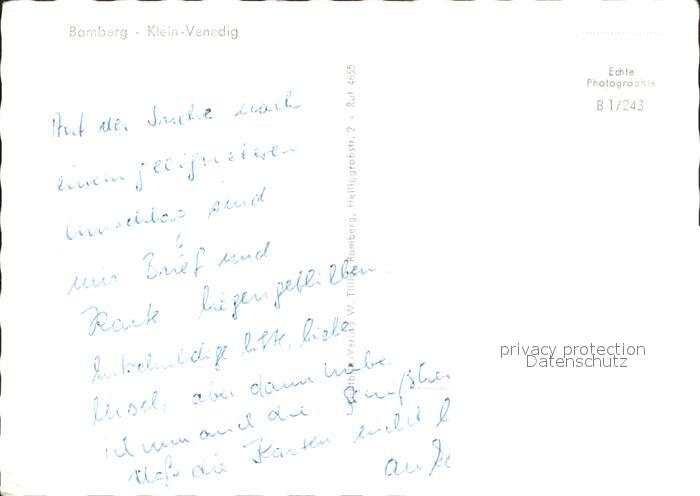 Bamberg - Klein-Venedig
Echte
Photographie
B 1/243
Auf der Suche nach
einem geeigneteren
Umschlag sind
mir Brief und
Karte liegengeblieben.
Entschuldige bitte, liebe
aber dann habe
ich nun auch die
daß die Karten nicht
Verlag W. Tillig, Bamberg, Heiliggrabstr. 2 - Ruf 4655
privacy protection
Datenschutz